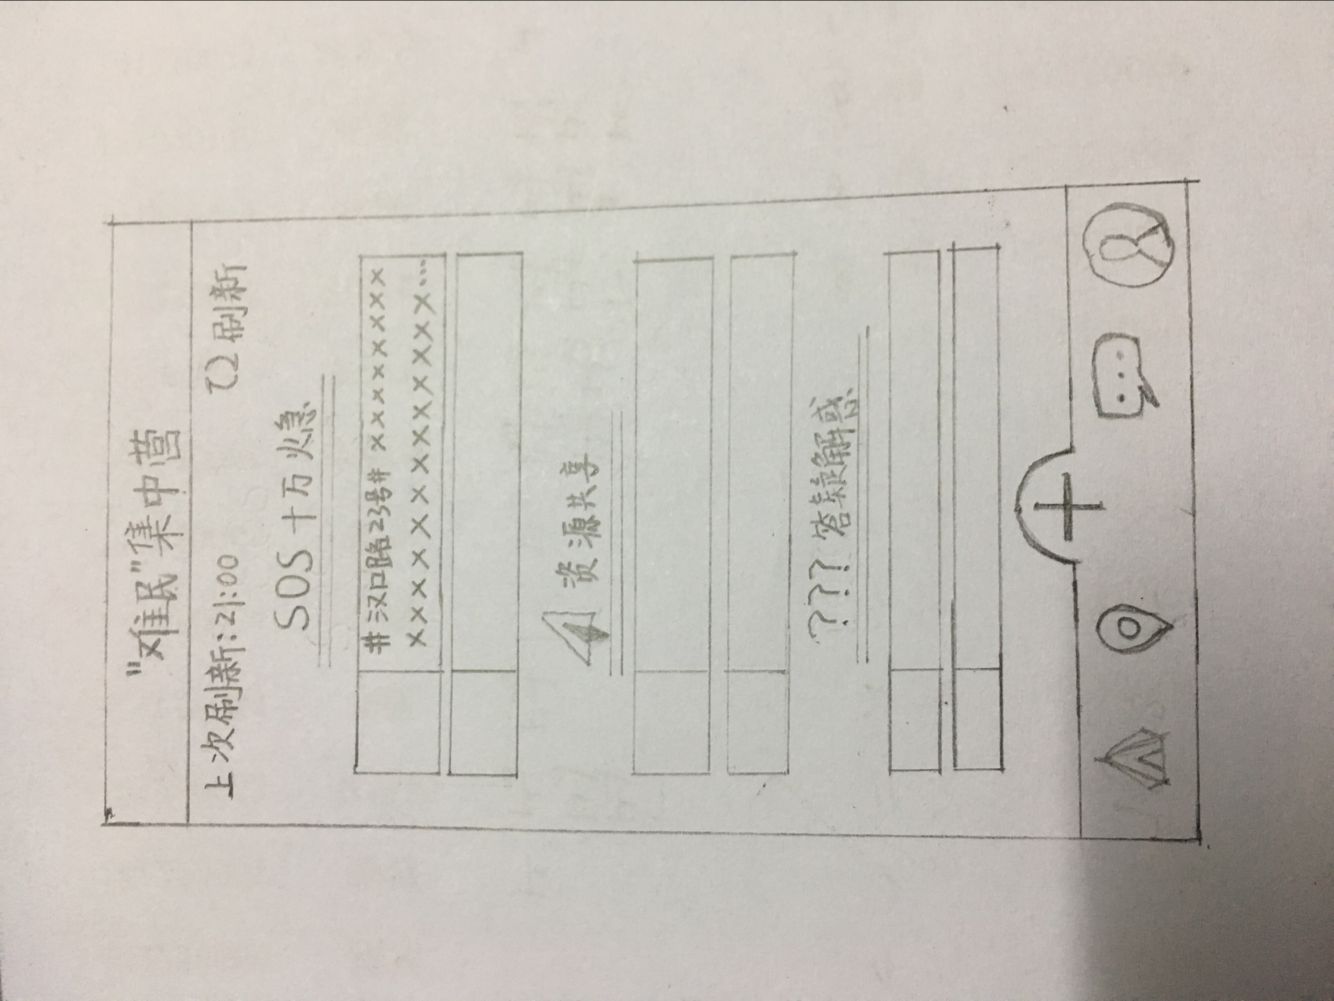 "难民"集中营
上次刷新:21:00 刷新
SOS 十万火急
#汉口路23号# ××××××××
×××××××××××××…
资源共享
??? 答疑解惑